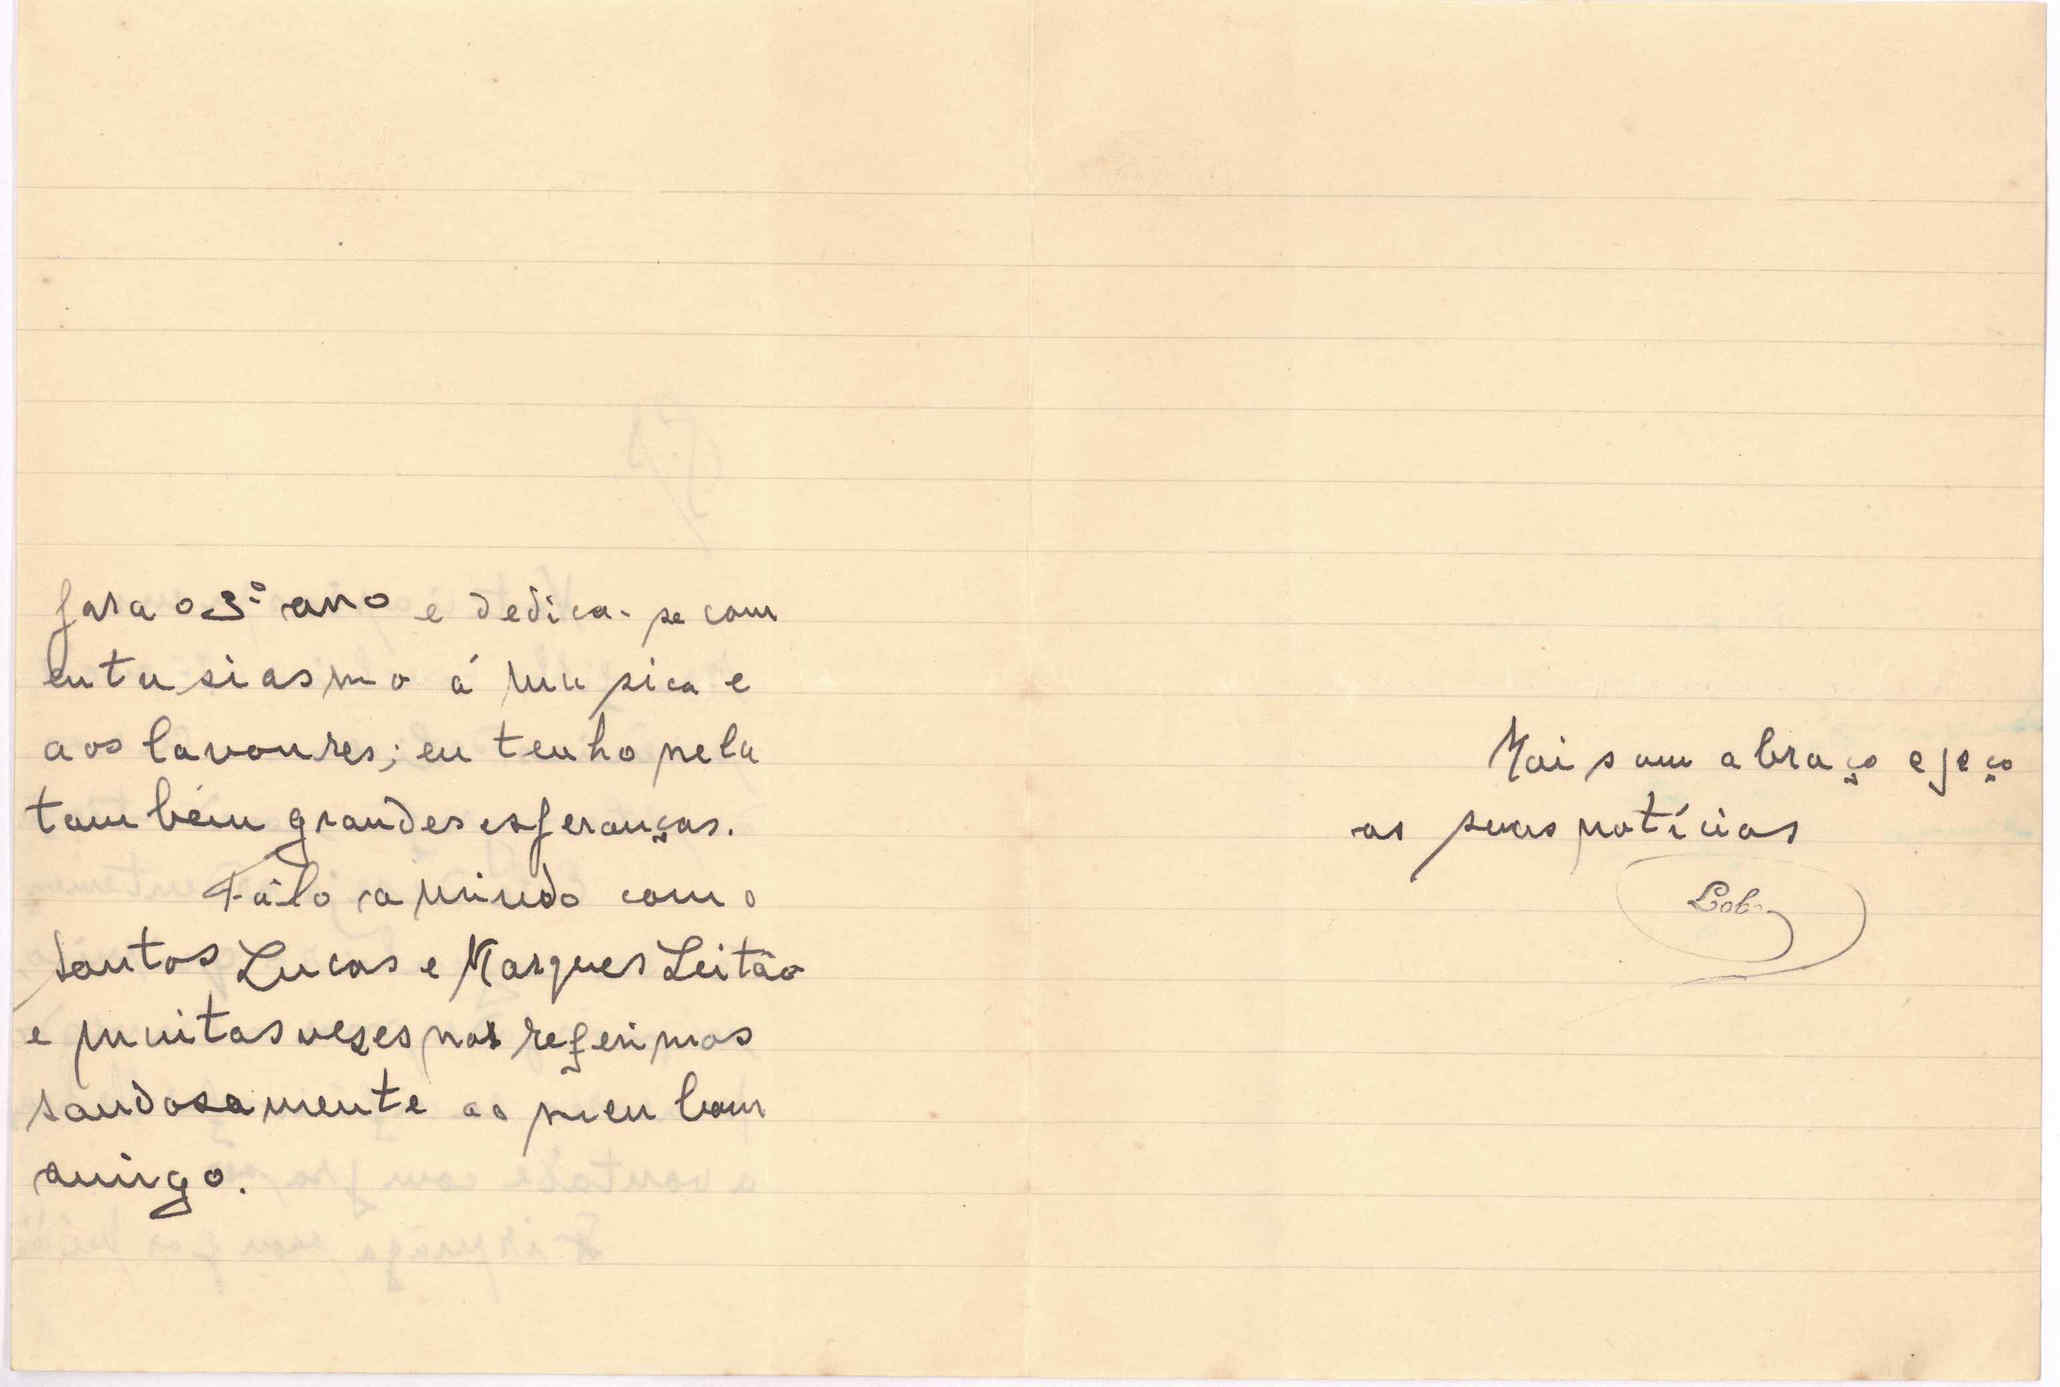 para o 3º ano e dedica-se com
entusiasmo á musica e
aos lavoures; eu tenho nela
também grandes esperanças.
Fálo a miudo com o
Santos Lucas e Marques Leitão
e muitas vezes nos referimos
saudosamente ao meu bom
amigo.
Mais um abraço e peço
as suas notícias
Lobo